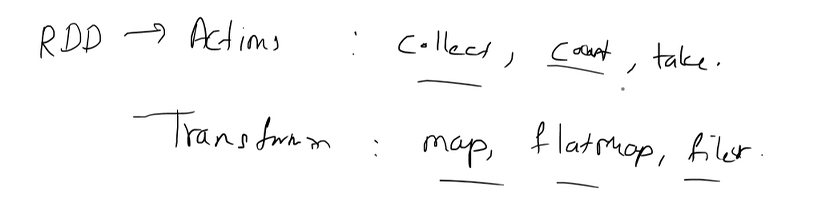 RDD → Actions : Collect, Count, take.
Transform : map, flatmap, filer.